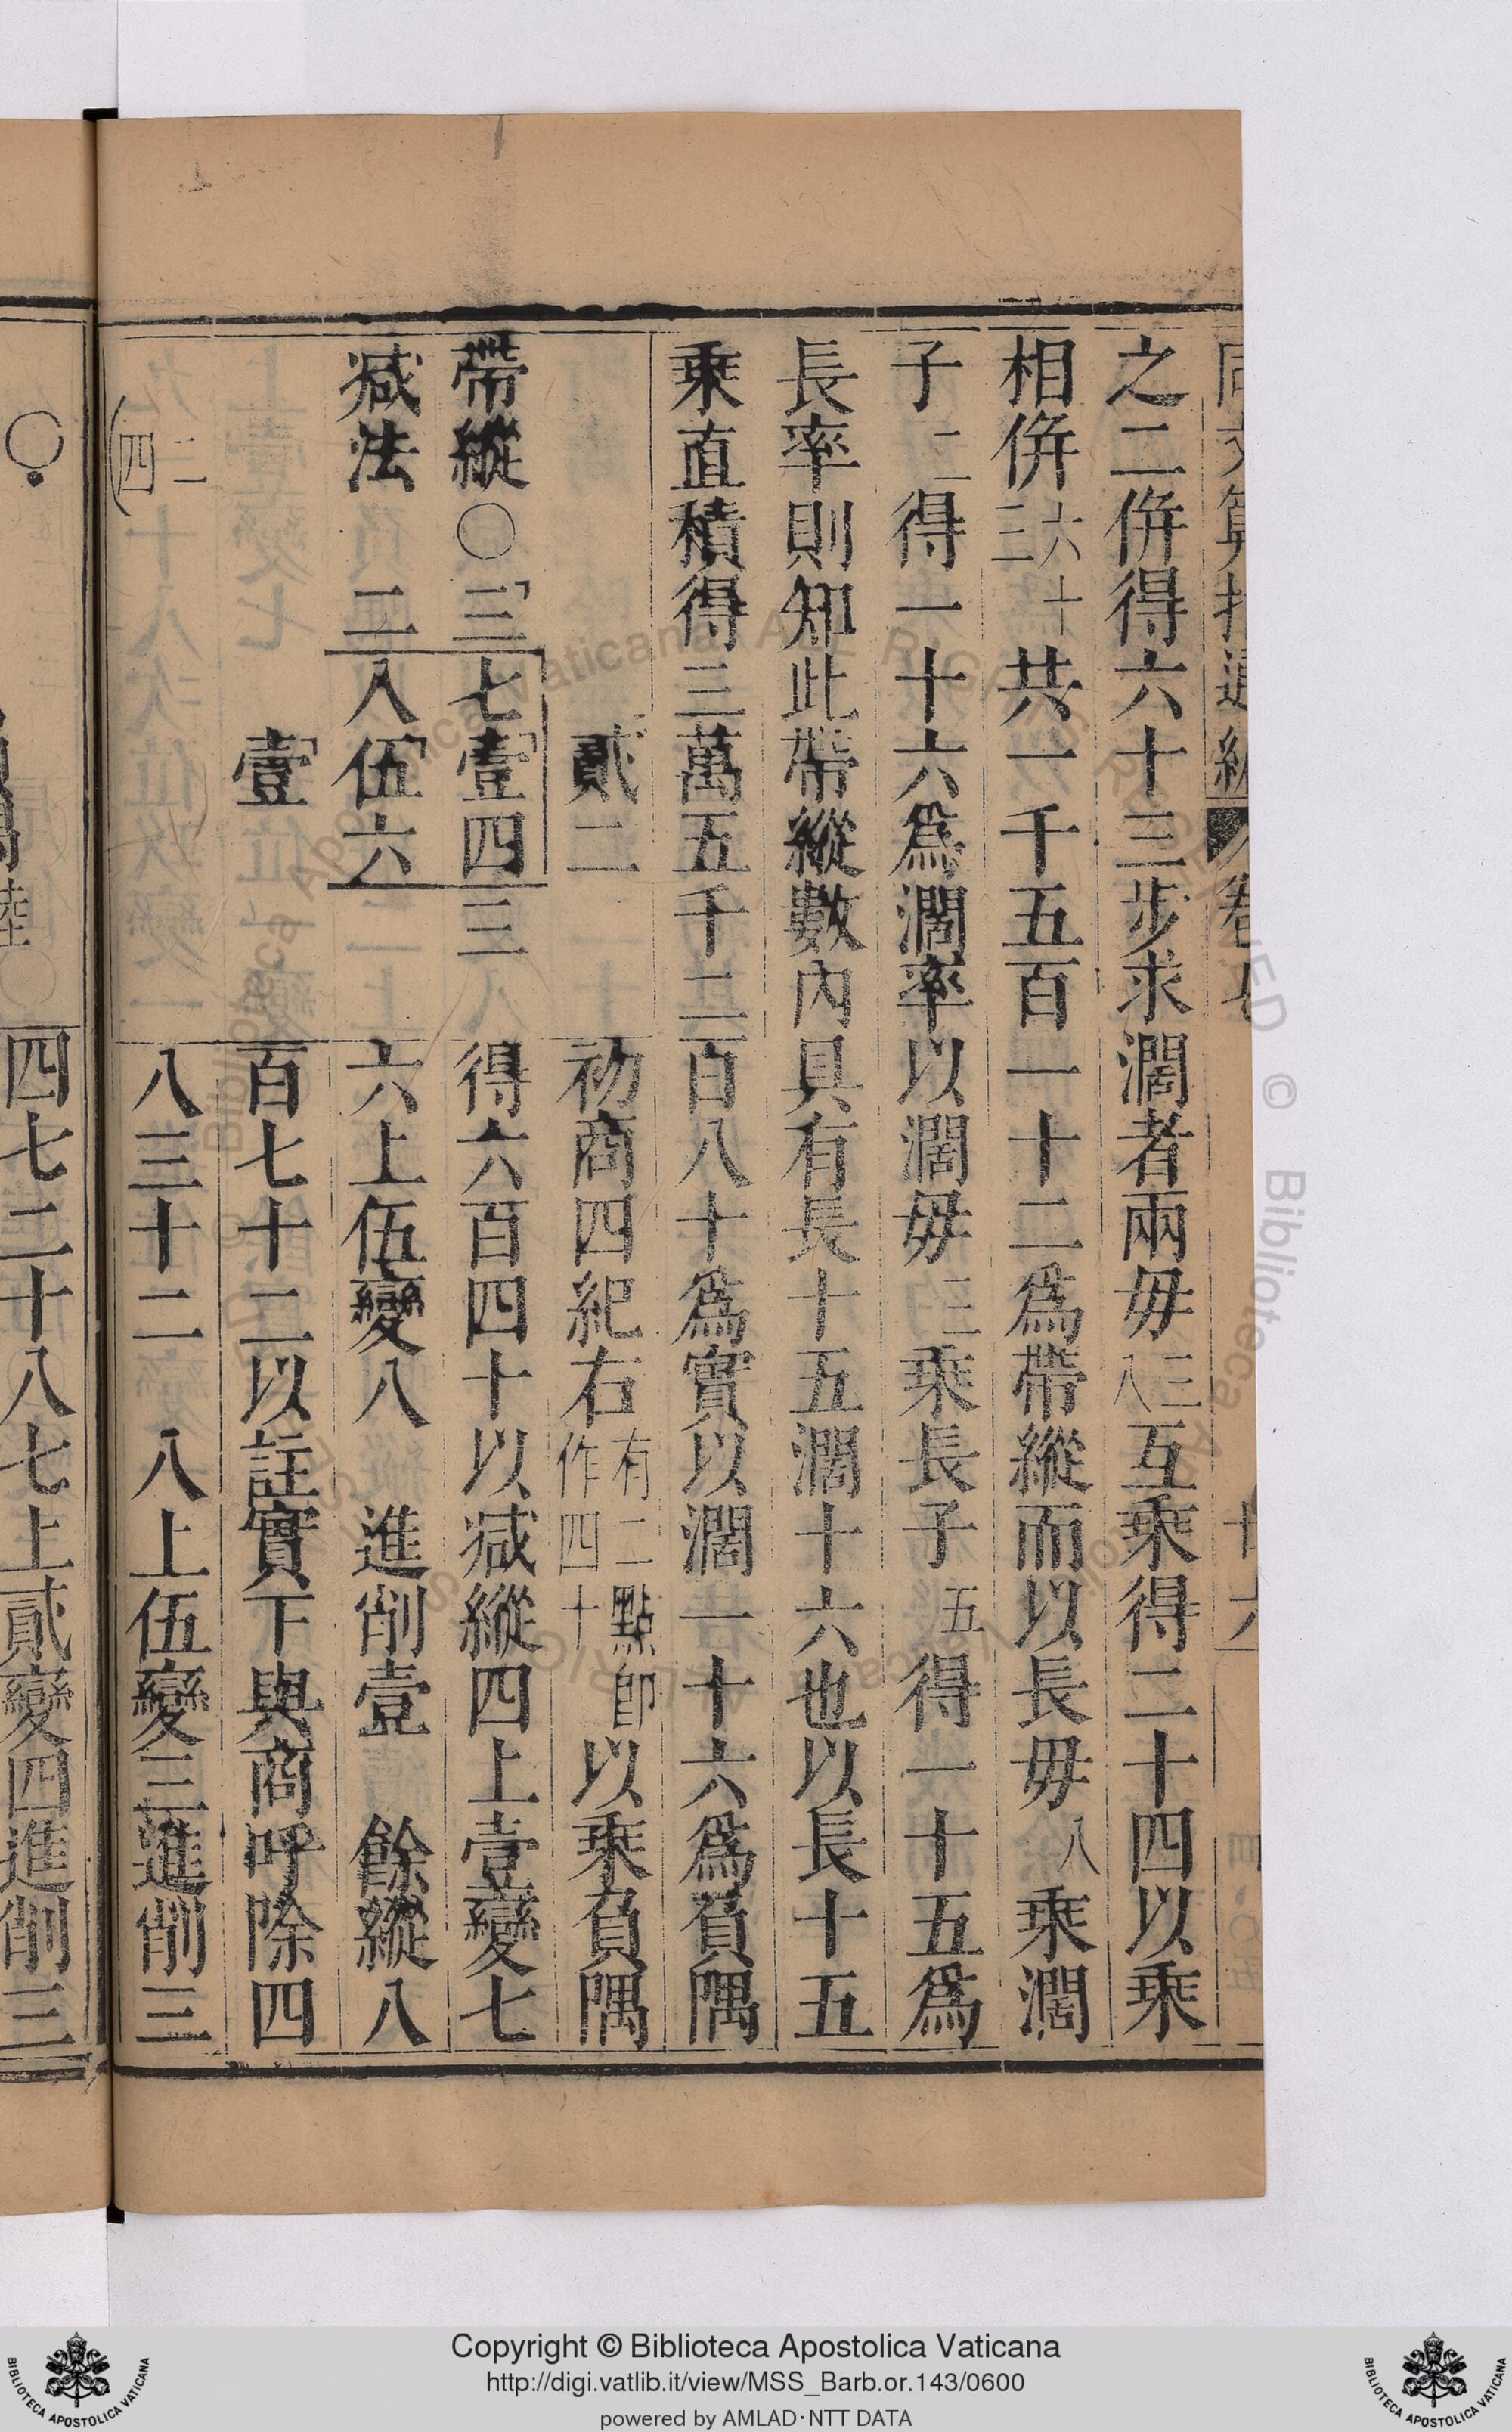 之二併得六十三步求濶者兩毋三八互乘得二十四以乘
相併六十三共一千五百一十二爲帶縱而以長毋八乘濶
子二得一十六爲濶率以濶毋三乘長子五得一十五爲
長率則知此帶縱數內具有長十五濶十六也以長十五
乘直積得三萬五千二百八十爲實以濶一十六爲負隅
貳二
初商四紀右有二點卽作四十以乘負隅
帶縱〇三七壹四三
得六百四十以減縱四上壹變七
减法 二八伍六
六上伍變八 進削壹 餘縱八
壹
百七十二以註實下與商呼除四
二
四
八三十二 八上伍變三進削三
四七二十八七上貳變四進削三
Copyright © Biblioteca Apostolica Vaticana
http://digi.vatlib.it/view/MSS_Barb.or.143/0600
powered by AMLAD·NTT DATA
BIBLIOTECA APOSTOLICA VATICANA
BIBLIOTECA APOSTOLICA VATICANA